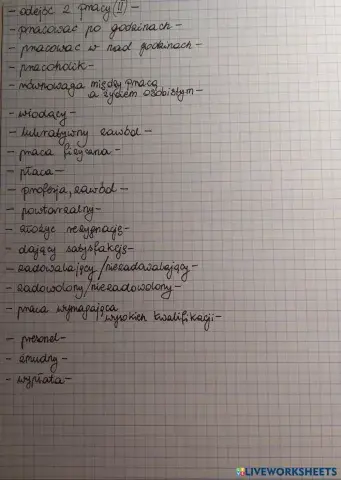 - odejść z pracy (II) -
- pracować po godzinach -
- pracować w nad godzinach -
- pracoholik -
- równowaga między pracą
a życiem osobistym -
- wiodący -
- lukratywny zawód -
- praca fizyczna -
- płaca -
- profesja, zawód -
- powtarzalny -
- złożyć rezygnację -
- dający satysfakcję -
- zadowalający / niezadowalający -
- zadowolony / niezadowolony -
- praca wymagająca
wysokich kwalifikacji -
- personel -
- żmudny -
- wypłata -
LIVEWORKSHEETS